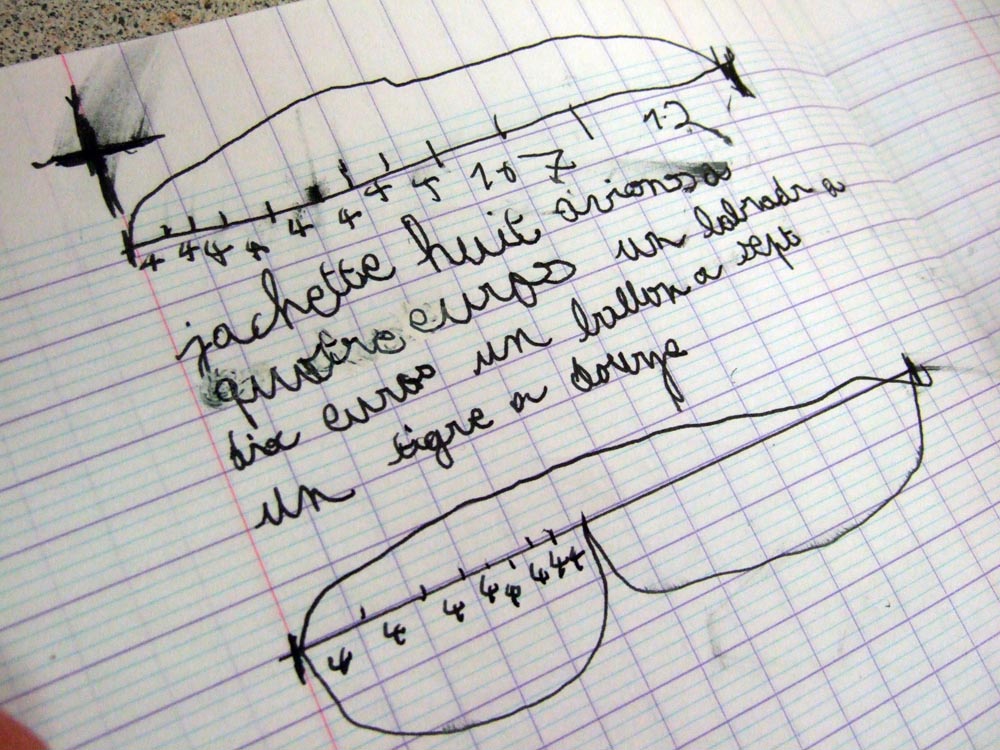 4 4 4 4 4 4 4 4 10 7 12
jachette huit avions a
quatre euros un labradr a
dix euros un ballon a sept
un tigre a douze
4 4 4 4 4 4 4 4